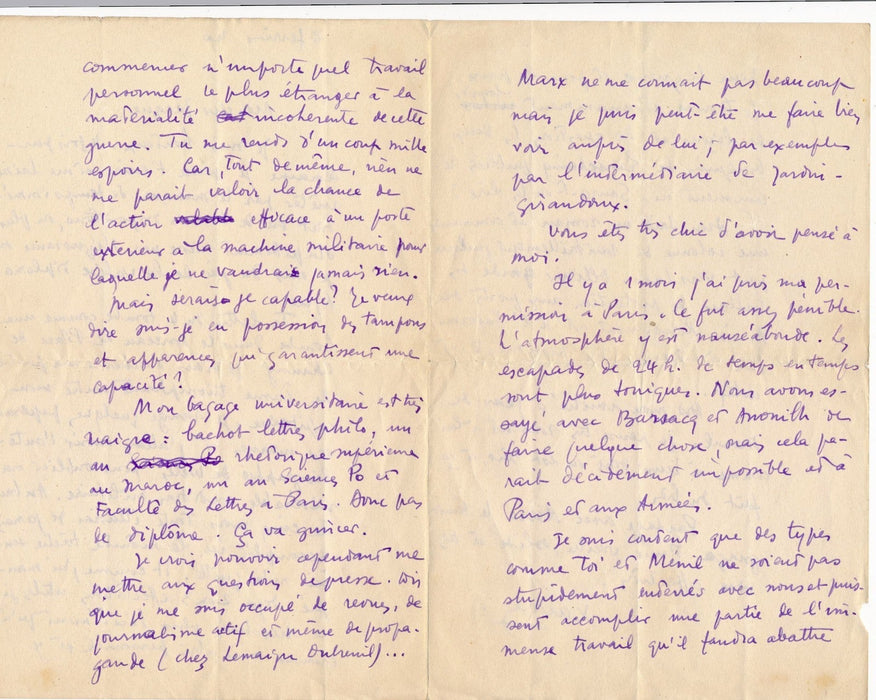 commencer n'importe quel travail
personnel le plus étranger à la
matérialité incohérente de cette
guerre. Tu me rends d'un coup mille
espoirs. Car, tout de même, rien ne
me parait valoir la chance de
l'action valable efficace à un poste
extérieur à la machine militaire pour
laquelle je ne vaudrais jamais rien.
Mais serais-je capable? Je veux
dire suis-je en possession des tampons
et apparences qui garantissent une
capacité?
Mon bagage universitaire est très
maigre : bachot-lettres philo, un
an Sciences Po rhétorique supérieure
au Maroc, un an Sciences Po et
Faculté des Lettres à Paris. Donc pas
de diplôme. Ça va grincer.
Je crois pouvoir cependant me
mettre aux questions de presse.
que je me suis occupé de revues, de
journalisme actif et même de propa-
gande (chez Lemaigre Dubreuil)...
Marx ne me connait pas beaucoup
mais je puis peut-être me faire bien
voir auprès de lui, par exemple
par l'intermédiaire de Jardin-
Giraudoux.
Vous êtes très chic d'avoir pensé à
moi.
Il y a 1 mois j'ai pris ma per-
mission à Paris. Ce fut assez pénible.
L'atmosphère y est nauséabonde. Les
escapades de 24 h. de temps en temps
sont plus toniques. Nous avons es-
sayé avec Barsacq et Anouilh de
faire quelque chose, mais cela pa-
rait décidément impossible et à
Paris et aux Armées.
Je suis content que des types
comme toi et Ménil ne soient pas
stupidement enterrés avec nous et puis-
sent accomplir une partie de l'im-
mense travail qu'il faudra abattre